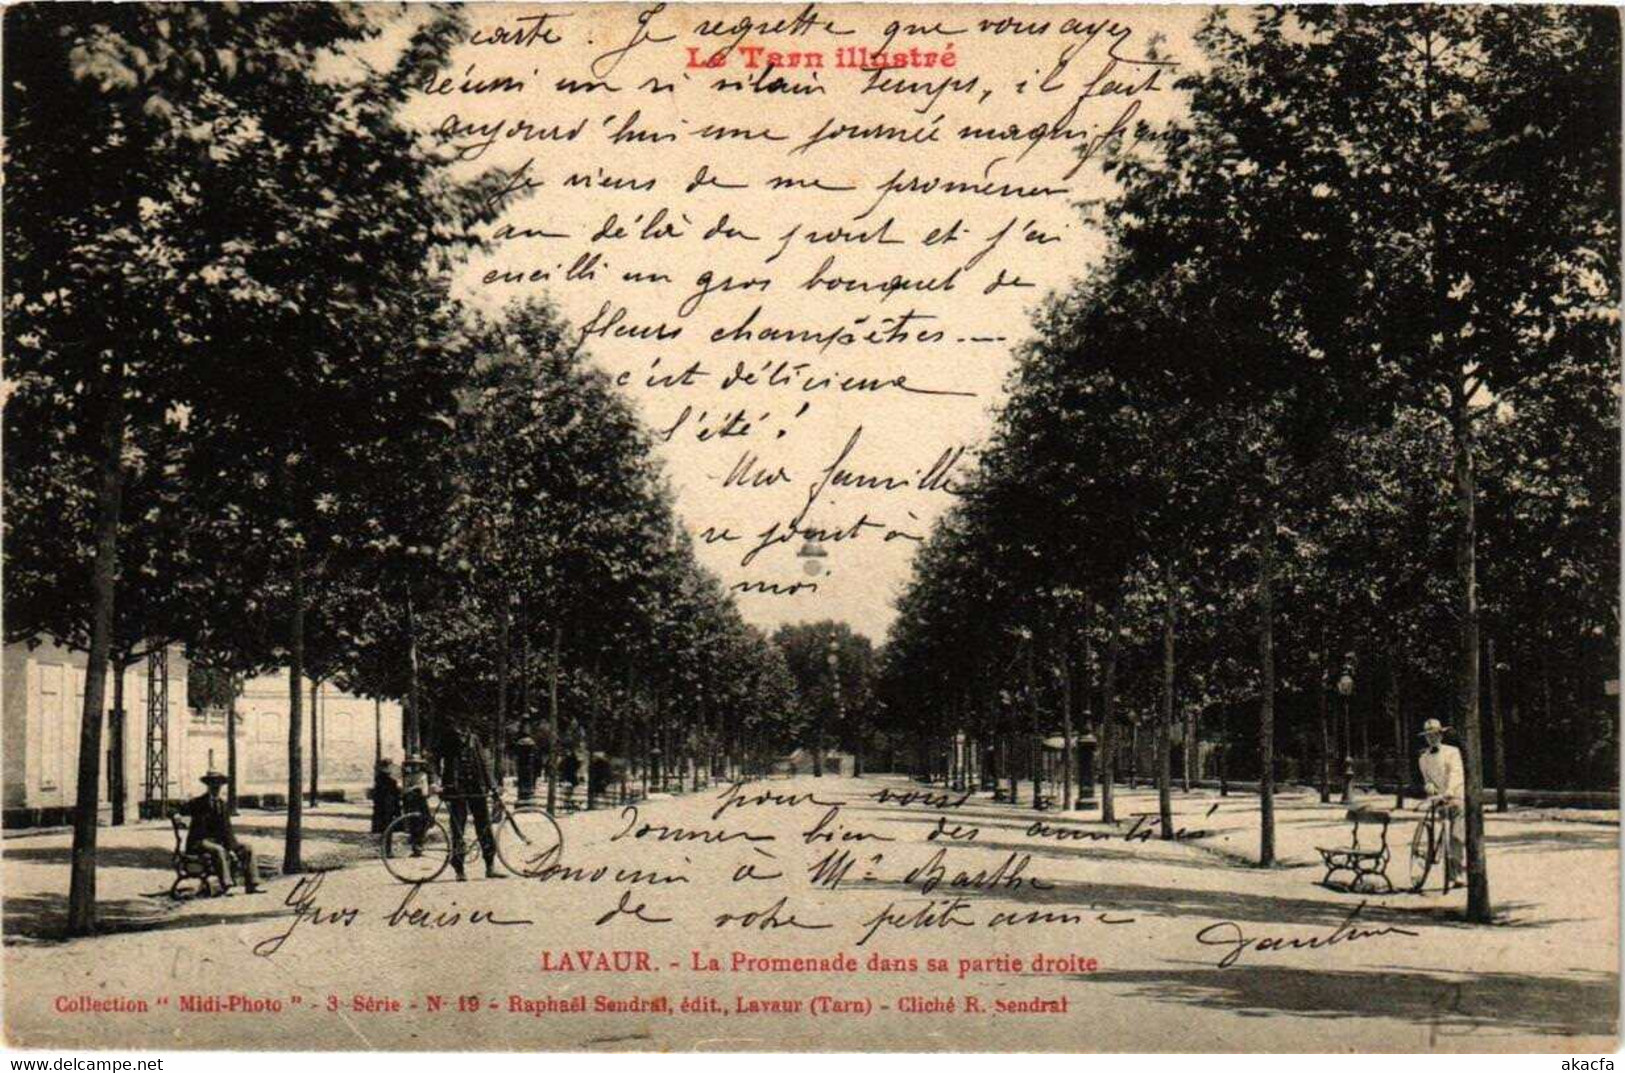 carte. Je regrette que vous ayez
Le Tarn illustré
réuni un si vilain temps, il fait
aujourd'hui une journée magnifique
je viens de me promener
au délà du pont et j'ai
cueilli un gros bouquet de
fleurs champêtres...
c'est délicieux
l'été!
Ma famille
se joint à
moi
pour vous
donner bien des amitiés.
Souvenir à Mr Barthe
Gros baiser de votre petite amie
Pauline
LAVAUR. - La Promenade dans sa partie droite
Collection "Midi-Photo" - 3 Série - N· 19 - Raphaël Sendral, édit., Lavaur (Tarn) - Cliché R. Sendral
www.delcampe.net
akacfa